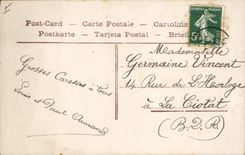 Post-Card — Carte Postale — Cartolina
Postkarte — Tarjeta Postal — Brief
5
Mademoiselle
Germaine Vincent
14 Rue de L'Horloge
à La Ciotat
(B.D.R)
Grosses Caresses à tous
Louis et Paul Armand